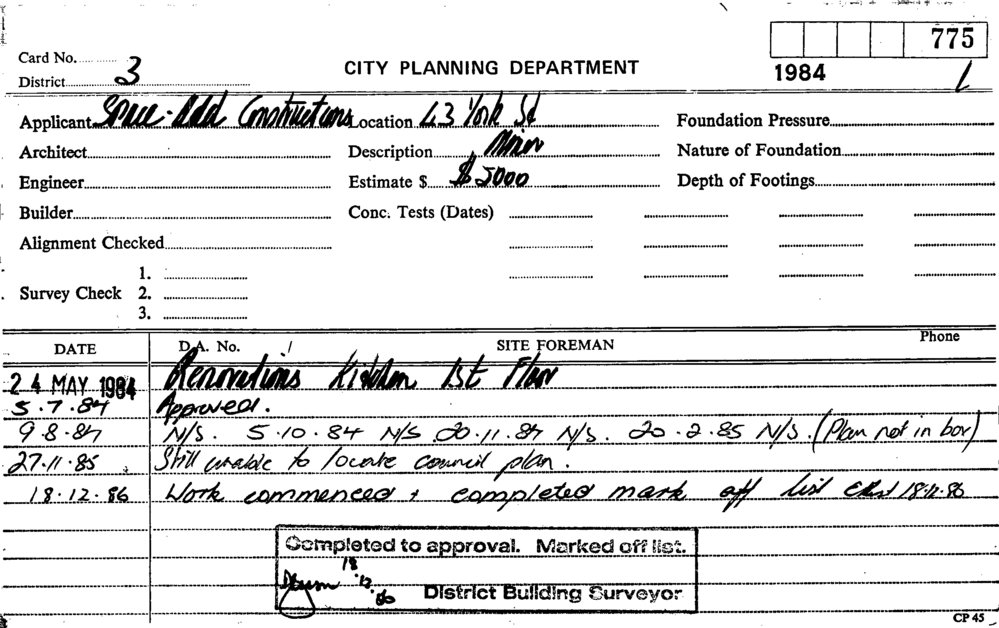 775
Card No.
District 3
CITY PLANNING DEPARTMENT
1984
L
Applicant Space-Add Constructions Location 43 York St Foundation Pressure
Architect Description Minor Nature of Foundation
Engineer Estimate $ $ 5000 Depth of Footings
Builder Conc. Tests (Dates)
Alignment Checked
1.
Survey Check 2.
3.
DATE D.A. No. / SITE FOREMAN Phone
24 MAY 1984 Renovations Kitchen 1st Floor
5.7.84 Approved.
9.8.84 N/S. 5.10.84 N/S 20.11.84 N/S. 20.2.85 N/S. (Plan not in box)
27.11.85 Still unable to locate council plan.
18.12.86 Work commenced + completed mark off list 18.12.86
Completed to approval. Marked off list.
18.12.86
District Building Surveyor
CP 45